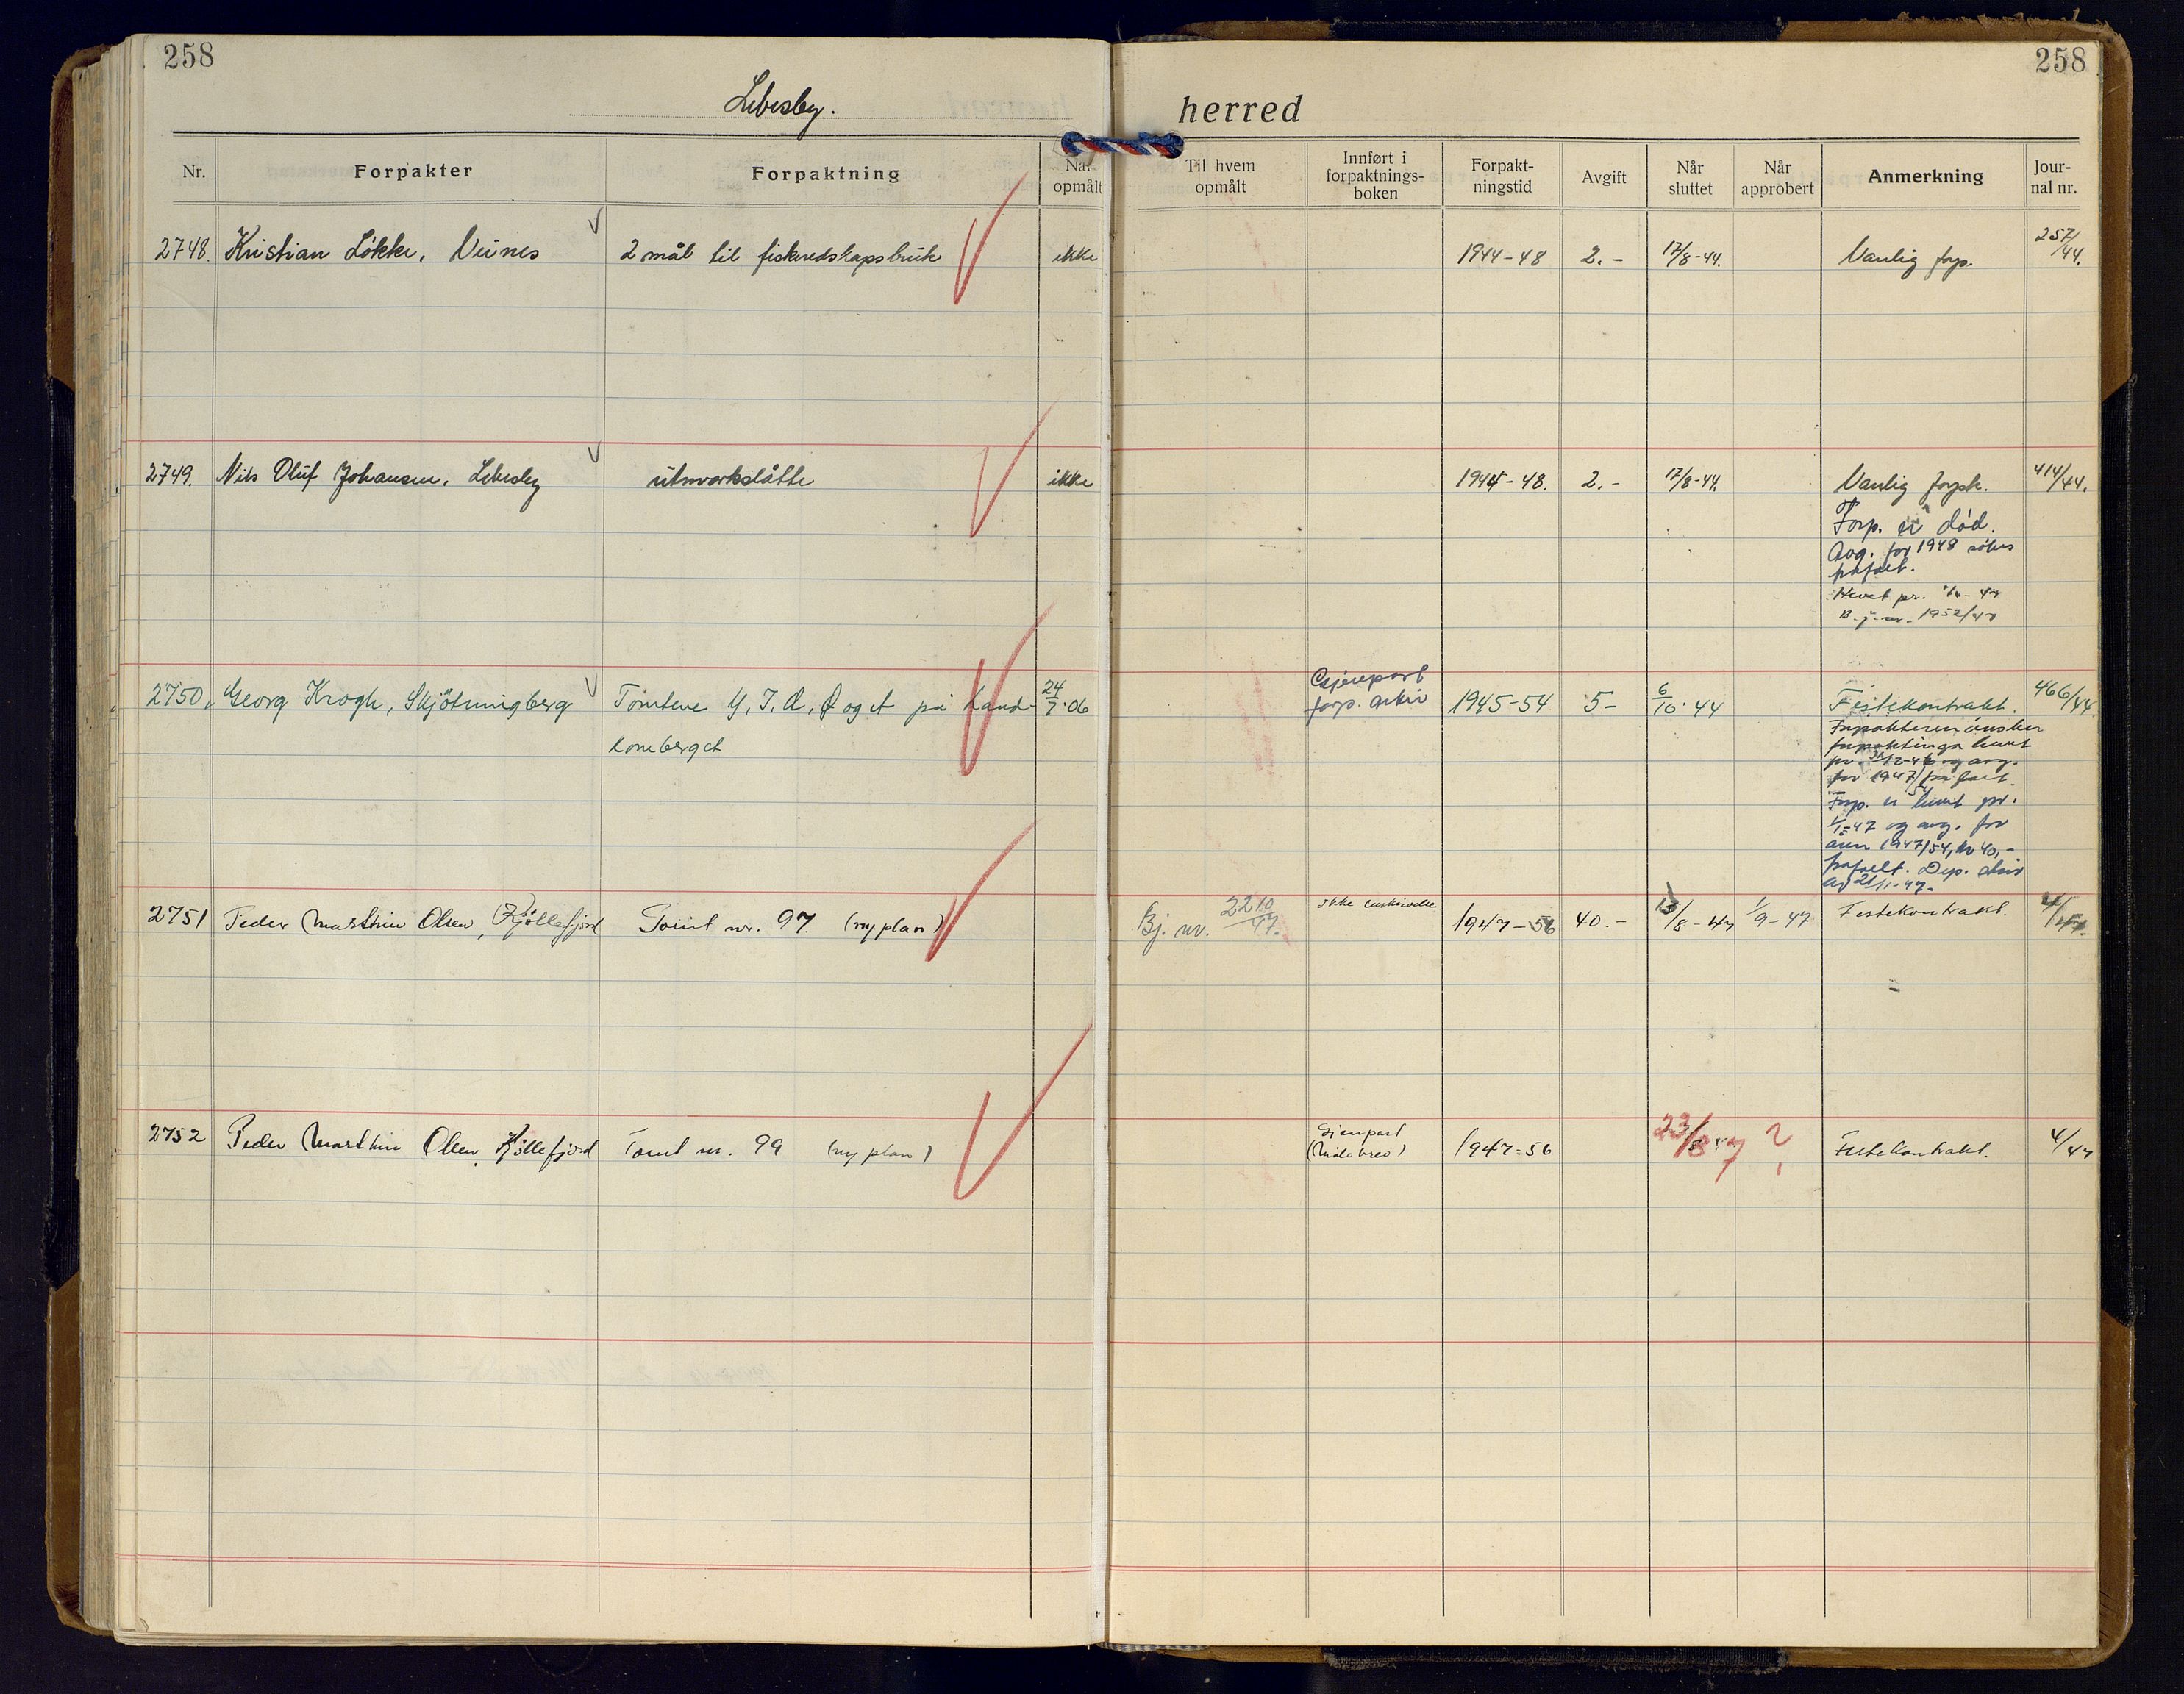 258
258
Lebesby.
herred
Nr.
Forpakter
Forpaktning
Når opmålt
Til hvem opmålt
Innført i forpaktnings-boken
Forpakt-ningstid
Avgift
Når sluttet
Når approbert
Anmerkning
Jour-nal nr.
2748. Kristian Løkke, Veines
2 mål til fiskeredskapsbruk
ikke
1944-48
2.-
17/8-44.
Vanlig forp.
257/44.
2749. Nils Oluf Johansen, Lebesby
utmarkslåtte
ikke
1944-48.
2.-
17/8-44.
Vanlig forpk.
414/44.
Forp. er død.
Avg. for 1948 søkes
påfalt.
Hevet pr.
B.j.nr. 1952/47
2750, Georg Krogh, Skjötningberg
Tomtene Y, I, Q, og A på Land-
koneberget
24/7-06
Gjenpart
forp. arkiv
1945-54
5-
6/10-44
Festekontrakt.
466/44
Forpakteren ønsker
forpaktinga hevet
pr. 31/12-46 og avg.
for 1947/54 frafalt.
Forp. er hevet pr.
1/1-47 og avg. for
åren 1947/54, kr 40,-
frafalt. Dep. skriv
av 21/11-47-
2751 Peder Marthin Olsen, Kjöllefjord
Tomt nr. 97. (ny plan)
Bj. nr. 2210/47.
ikke
1947-56
40.-
/8-47
1/9-47
Festekontrakt.
4/47.
2752 Peder Marthin Olsen, Kjöllefjord
Tomt nr. 99 (ny plan)
Gjenpart
(Målebrev)
1947-56
23/8 47
?
Festekontrakt.
4/47